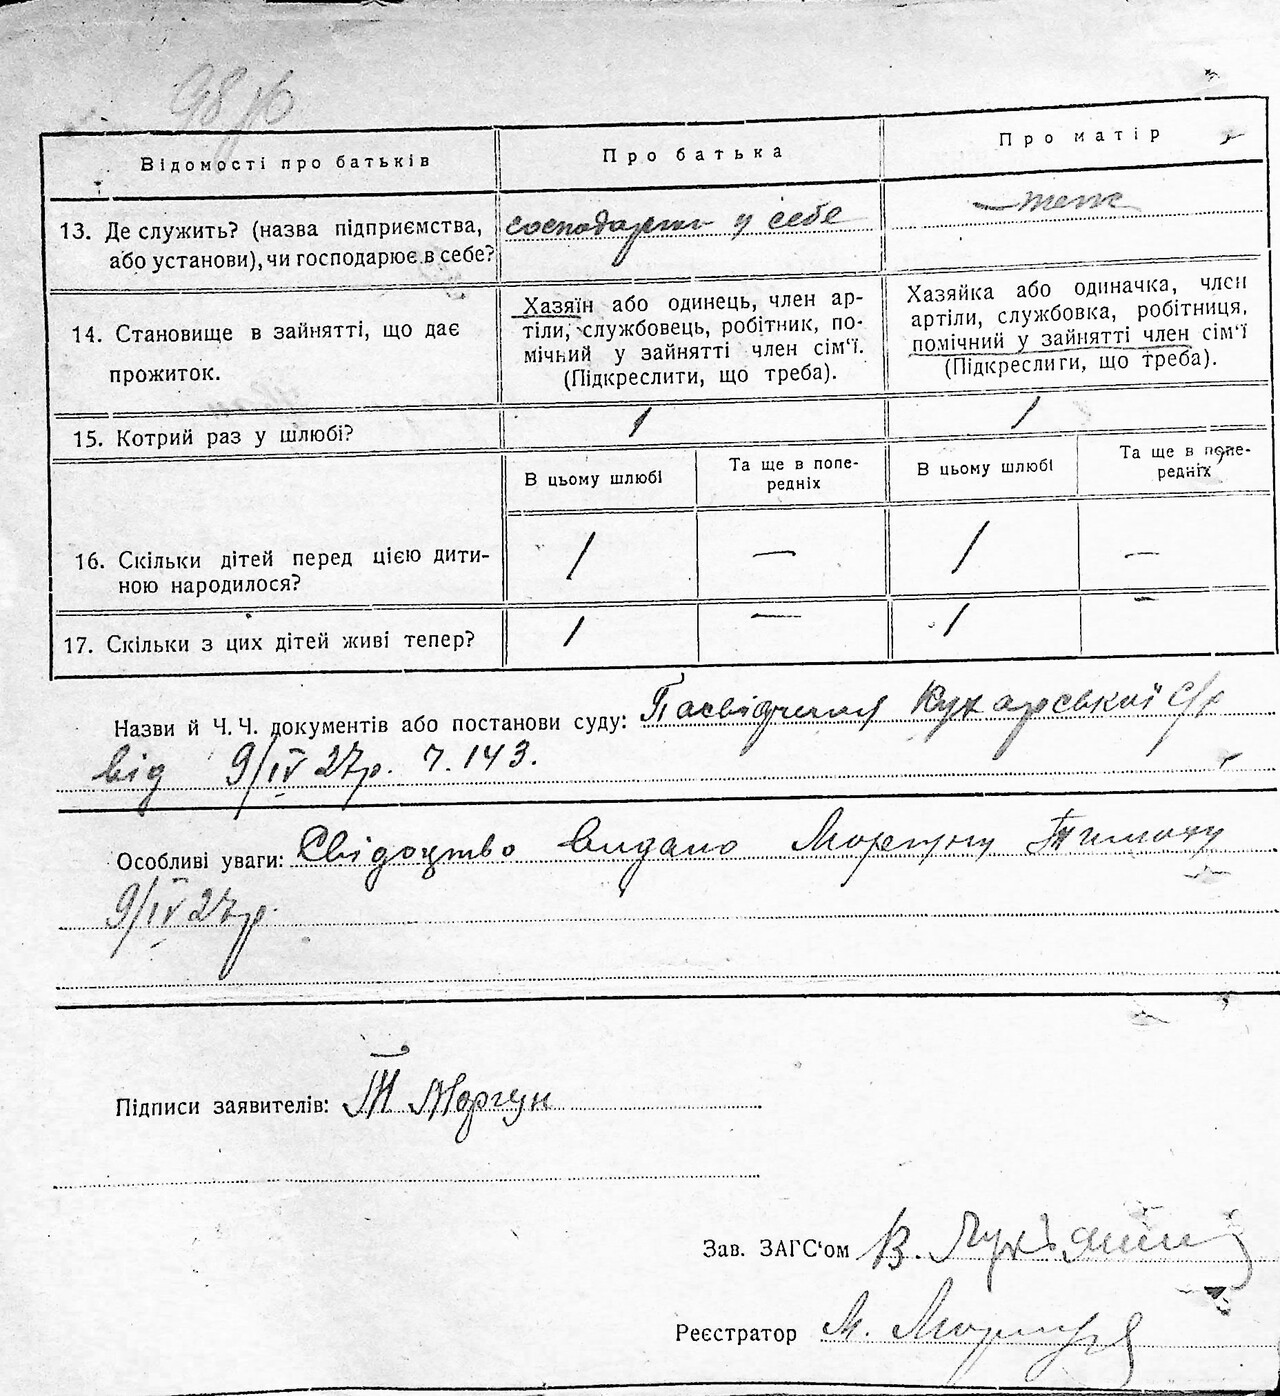 Відомості про батьків
Про батька
Про матір
13. Де служить? (назва підприємства, або установи), чи господарює в себе?
господарює у себе
— теж
14. Становище в зайнятті, що дає прожиток.
Хазяїн або одинець, член ар-
тіли, службовець, робітник, по-
мічний у зайнятті член сім'ї.
(Підкреслити, що треба).
Хазяйка або одиначка, член
артіли, службовка, робітниця,
помічний у зайнятті член сім'ї
(Підкреслити, що треба).
15. Котрий раз у шлюбі?
1
1
В цьому шлюбі
Та ще в попе-
редніх
В цьому шлюбі
Та ще в попе-
редніх
16. Скільки дітей перед цією дити-
ною народилося?
1
—
1
—
17. Скільки з цих дітей живі тепер?
1
—
1
—
Назви й Ч. Ч. документів або постанови суду: Посвідчення Кухарської с/р
від 9/IV 27р. ч. 143.
Особливі уваги: Свідоцтво видано Моргуну Тимоху
9/IV 27р.
Підписи заявителів: Т Моргун
Зав. ЗАГС'ом В.
Реєстратор М.